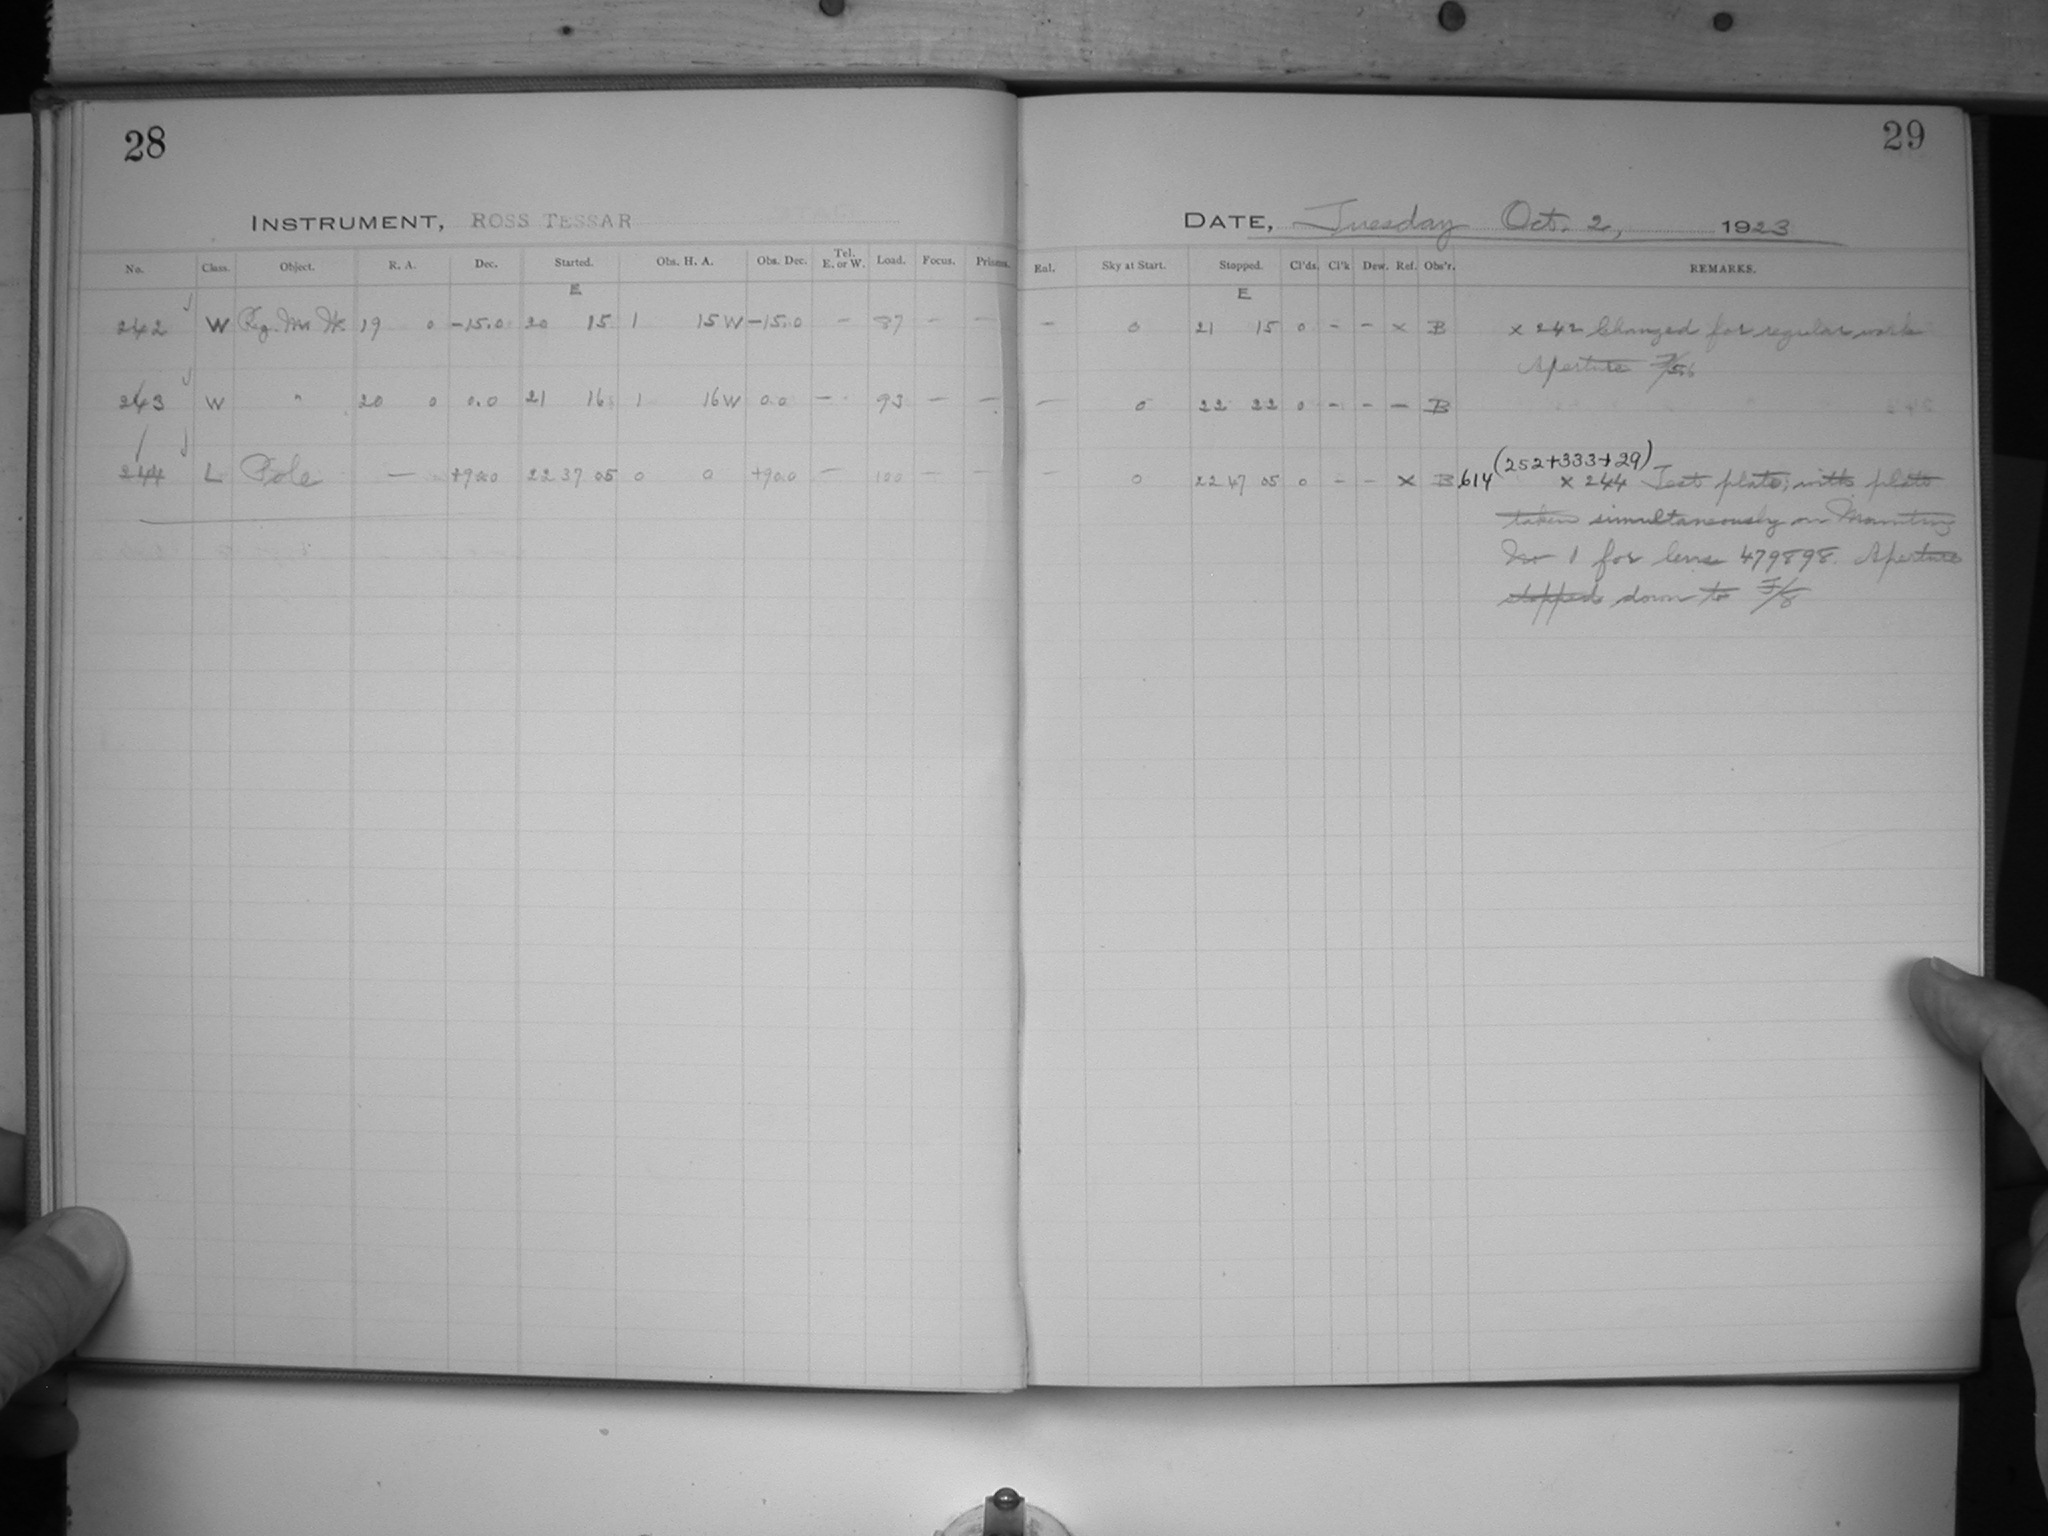 28
29
INSTRUMENT, ROSS TESSAR
DATE, Tuesday Oct. 2, 1923
No. Class. Object. R. A. Dec. Started. Obs. H. A. Obs. Dec. Tel. E. or W. Load. Focus. Prisms. Eal. Sky at Start. Stopped. Cl'ds. Cl'k Dew. Ref. Obs'r. REMARKS.
E E
242 W Reg. Mr Wk 19 0 -15.0 20 15 1 15 W -15.0 - 87 - - - 0 21 15 0 - - x B x 242 Changed for regular work
Aperture F/5.6
243 W " 20 0 0.0 21 16 1 16 W 0.0 - 93 - - - 0 22 22 0 - - - B
(252+333+29)
244 L Pole - +90.0 22 37 05 0 0 +90.0 - 100 - - - 0 22 47 05 0 - - x B 614 x 244 Test plate; with plate
taken simultaneously on Mounting
No 1 for lens 479898. Aperture
stopped down to F/8